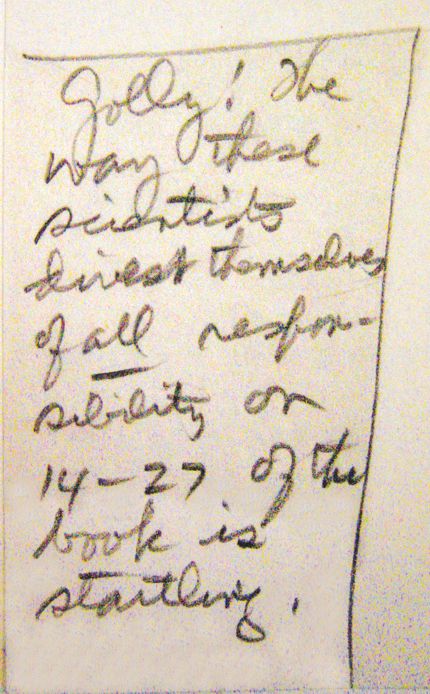 Golly! The
way these
scientists
divest themselves
of all respon-
sibility on
14-27 of the
book is
startling.